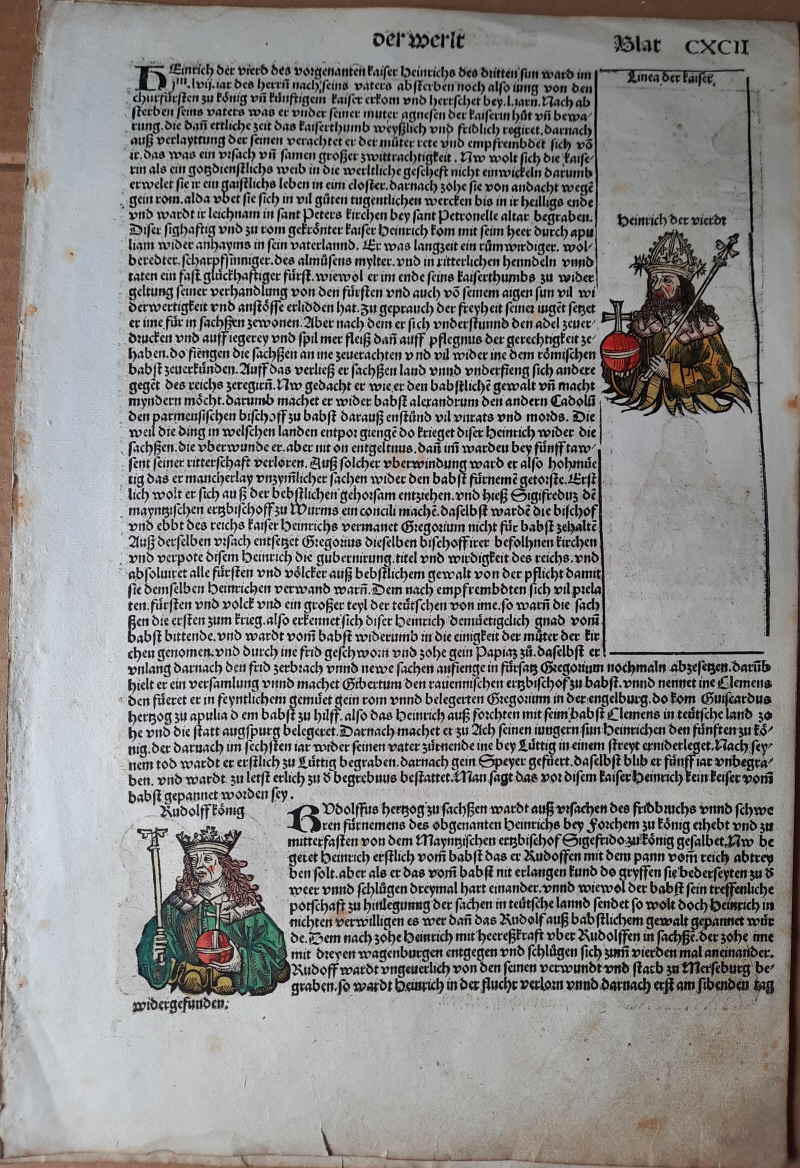 der werlt
Blat CXCII
HEinrich der vierd des vorgenanten kaiser Heinrichs des dritten sun ward im
jm. lvij. iar des herrñ nach seins vaters absterben noch also iung von den
churfürsten zu König vñ künftigem kaiser erkorn vnd herrschet bey. l. iarn. Nach ab
sterben seins vaters was er vnder seiner muter agnesen der kaiserin hůt vñ bewa-
rung. die dañ ettliche zeit das kaiserthumb weyßlich vnd fridlich regiret. darnach
auß verlayttung der seinen verachtet er der můter rete vnd empfrembdet sich võ
ir. das was ein vrsach vñ samen großer zwittrachtigkeit. Nw wolt sich die kaise-
rin als ein gotzdienstlichs weib in die werltliche gescheft nicht einwickeln darumb
erwelet sie ir ein gaistlichs leben in eim closter. darnach zohe sie von andacht wegẽ
gein rom. alda vbet sie sich in vil gůten tugentlichen wercken bis in ir heilligs ende
vnd wardt ir leichnam in sant Peters kirchen bey sant Petronelle altar begraben.
Diser sighaftig vnd zu rom gekrönter kaiser Heinrich kom mit seim heer durch apu
liam wider anhayms in sein vaterlannd. Er was langzeit ein růmwirdiger. wol-
beredter. scharpfsinniger. des almůsens mylter. vnd in ritterlichen henndeln vnnd
taten ein fast glückhaftiger fürst. wiewol er im ende seins kaiserthumbs zu wider
geltung seiner verhandlung von den fürsten vnd auch võ seinem aigen sun vil wi
derwertigkeit vnd anstösse erlidden hat. Zu geprauch der freyheit seiner iuget setzet
er ime für in sachßen zewonen. Aber nach dem er sich vnderstunnd den adel zeuer-
drucken vnd auff iegerey vnd spil mer fleiß dañ auff pflegnus der gerechtigkeit ze-
haben. do fiengen die sachßen an ine zeuerachten vnd vil wider ine dem römischen
babst zeuerkünden. Auff das verließ er sachßen land vnnd vnderfieng sich andere
geget des reichs zeregirñ. Nw gedacht er wie er den babstlichẽ gewalt vñ macht
myndern möcht. darumb machet er wider babst alexandrum den andern Cadolũ
den parmensischen bischoff zu babst darauß enstůnd vil vnrats vnd mords. Die
weil die ding in welschen landen entpor giengẽ do krieget diser Heinrich wider die
sachßen. die vberwunde er. aber nit on entgeltnus. dañ im warden bey fünff taw-
sent seiner ritterschaft verloren. Auß solcher vberwindung ward er also hohmůe
tig das er mancherlay vnzymlicher sachen wider den babst fürnemẽ getorste. Erst
lich wolt er sich auß der bebstlichen gehorsam entziehen. vnd hieß Sigifredum dẽ
mayntzischen ertzbischoff zu Wurms ein concili machẽ. daselbst wardẽ die bischof
vnd ebbt des reichs kaiser Heinrichs vermanet Gregorium nicht für babst zehaltẽ
Auß derselben vrsach entsetzet Gregorius dieselben bischoff irer befolhnen kirchen
vnd verpote disem Heinrich die gubernirung. titel vnd wirdigkeit des reichs. vnd
absoluiret alle fürsten vnd völcker auß bebstlichem gewalt von der pflicht damit
sie demselben Heinrichen verwand warñ. Dem nach empfrembdten sich vil prela
ten. fürsten vnd volck vnd ein großer teyl der teütschen von ime. so warñ die sach
ßen die ersten zum krieg. also erkennet sich diser Heinrich demüetigclich gnad vom̃
babst bittende. vnd wardt vom̃ babst widerumb in die einigkeit der můter der kir
chen genomen. vnd durch ine frid geschworn vnd zohe gein Papiaz zů. daselbst er
vnlang darnach den frid zerbrach vnnd newe sachen anfienge in fürsatz Gregorium nochmaln abzesetzen. darũb
hielt er ein versamlung vnnd machet Gibertum den rauennischen ertzbischof zu babst. vnnd nennet ine Clemens
den füeret er in feyntlichem gemüet gein rom vnnd belegerten Gregorium in der engelburg. do kom Guiscardus
hertzog zu apulia dem babst zu hilff. also das Heinrich auß forchten mit seim babst Clemens in teütsche land zo
he vnd die statt augspurg belegeret. Darnach machet er zu Ach seinen iungern sun Heinrichen den fünften zu kö-
nig. der darnach im sechsten iar wider seinen vater zürnende ine bey Lüttig in einem streyt erniderleget. Nach sey-
nem tod wardt er erstlich zu Lüttig begraben. darnach gein Speyer gefüert. daselbst blib er fünff iar vnbegra-
ben. vnd wardt zu letst erlich zu d begrebnus bestattet. Man sagt das vor disem kaiser Heinrich kein keiser vom̃
babst gepannet worden sey.
Linea der kaiser.
Heinrich der vierdt
Rudolff könig
RVdolffus hertzog zu sachßen wardt auß vrsachen des fridbruchs vnnd schwe
ren fürnemens des obgenanten Heinrichs bey Forchem zu könig erhebt vnd zu
mitterfasten von dem Mayntzischen ertzbischof Sigefrido zu könig gesalbet. Nw be
geret Heinrich erstlich vom̃ babst das er Rudolffen mit dem pann vom̃ reich abtrey
ben solt. aber als er das vom̃ babst nit erlangen kund do gryffen sie bederseyten zu d
weer vnnd schlůgen dreymal hart einander. vnnd wiewol der babst sein treffenliche
potschaft zu hinlegunng der sachen in teütsche lannd sendet so wolt doch Heinrich in
nichten verwilligen es wer dañ das Rudolf auß babstlichem gewalt gepannet wür
de. Dem nach zohe Heinrich mit heereßkraft vber Rudolffen in sachßẽ. der zohe ime
mit dreyen wagenburgen entgegen vnd schlůgen sich zum̃ vierden mal aneinander.
Rudoff wardt vngeuerlich von den seinen verwundt vnd starb zu Merseburg be-
graben. so wardt Heinrich in der flucht verlorn vnnd darnach erst am sibenden tag
widergefunden.